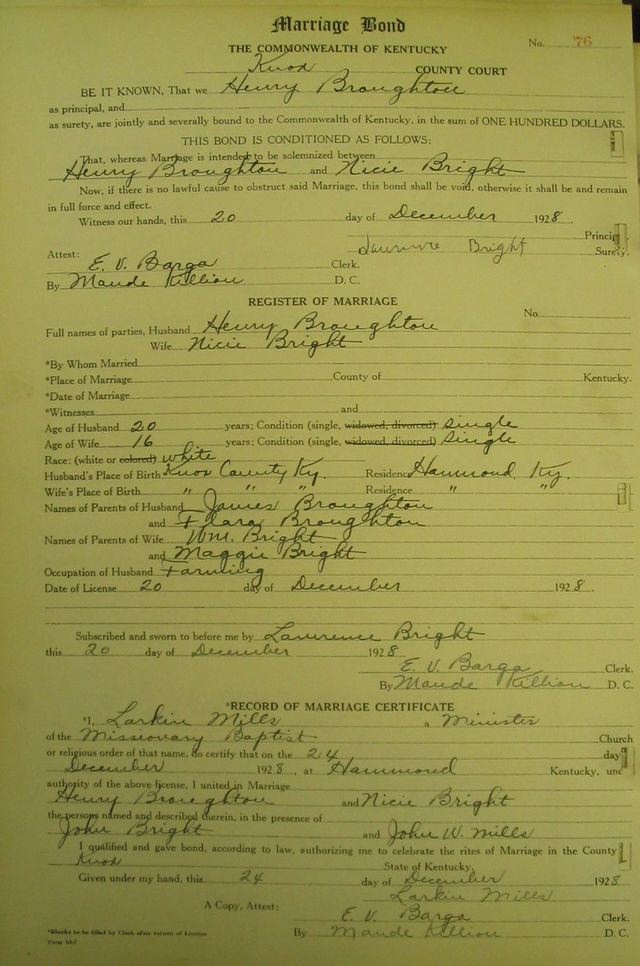 Marriage Bond
THE COMMONWEALTH OF KENTUCKY
No. 76
Knox COUNTY COURT
BE IT KNOWN, That we Henry Broughton
as principal, and
as surety, are jointly and severally bound to the Commonwealth of Kentucky, in the sum of ONE HUNDRED DOLLARS.
THIS BOND IS CONDITIONED AS FOLLOWS:
That, whereas Marriage is intended to be solemnized between
Henry Broughton and Nicie Bright
Now, if there is no lawful cause to obstruct said Marriage, this bond shall be void, otherwise it shall be and remain
in full force and effect.
Witness our hands, this 20 day of December 1928
Princip
Bright Surety.
Attest:
E. V. Barga Clerk.
By Maude Killion D. C.
REGISTER OF MARRIAGE
No.
Full names of parties, Husband Henry Broughton
Wife Nicie Bright
*By Whom Married
*Place of Marriage County of Kentucky.
*Date of Marriage
*Witnesses and
Age of Husband 20 years; Condition (single, widowed, divorced) single
Age of Wife 16 years; Condition (single, widowed, divorced) single
Race: (white or colored) white
Husband's Place of Birth Knox County Ky. Residence Hammond, Ky.
Wife's Place of Birth " " " Residence " "
Names of Parents of Husband James Broughton
and Flara Broughton
Names of Parents of Wife Wm. Bright
and Maggie Bright
Occupation of Husband Farming
Date of License 20 day of December 1928.
Subscribed and sworn to before me by Lawrence Bright
this 20 day of December 1928
E. V. Barga Clerk.
By Maude Killion D. C.
*RECORD OF MARRIAGE CERTIFICATE
*I, Larkin Mills a Minister
of the Missionary Baptist Church
or religious order of that name, do certify that on the 24 day
December 1928, at Hammond Kentucky, und
authority of the above license, I united in Marriage
Henry Broughton and Nicie Bright
the persons named and described therein, in the presence of
John Bright and John W. Mills
I qualified and gave bond, according to law, authorizing me to celebrate the rites of Marriage in the County
Knox State of Kentucky,
Given under my hand, this 24 day of December 1928
Larkin Mills
A Copy, Attest:
E. V. Barga Clerk.
By Maude Killion D. C.
*Blanks to be filled by Clerk after return of License